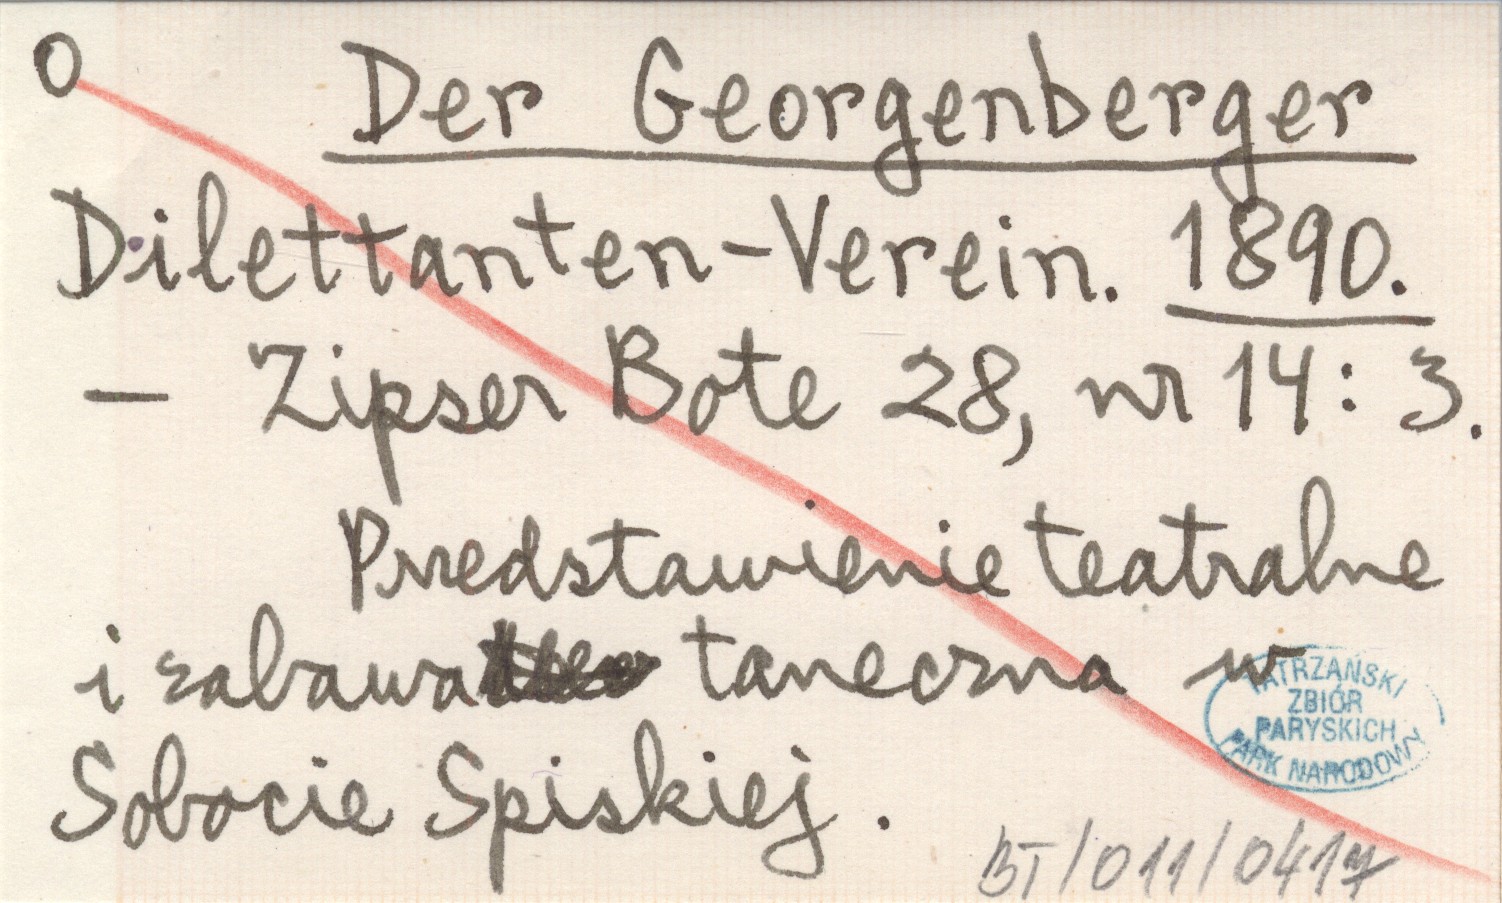 O Der Georgenberger
Dilettanten-Verein. 1890.
— Zipser Bote 28, nr 14: 3.
Przedstawienie teatralne
i zabawa taneczna w
Sobocie Spiskiej.
TATRZAŃSKI
ZBIÓR
PARYSKICH
PARK NARODOWY
BT/011/0417